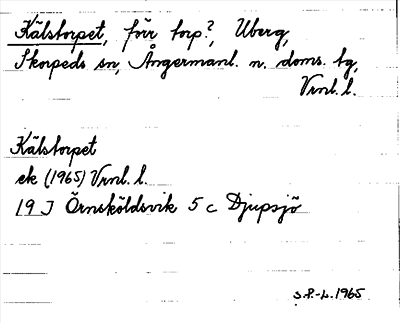 Kälstorpet, förr torp?, Uberg,
Skorpeds sn, Ångermanl. n. doms. tg,
Vrnl. l.
Kälstorpet
ek (1965) Vrnl. l.
19 J Örnsköldsvik 5 c Djupsjö
S.P.-L. 1965